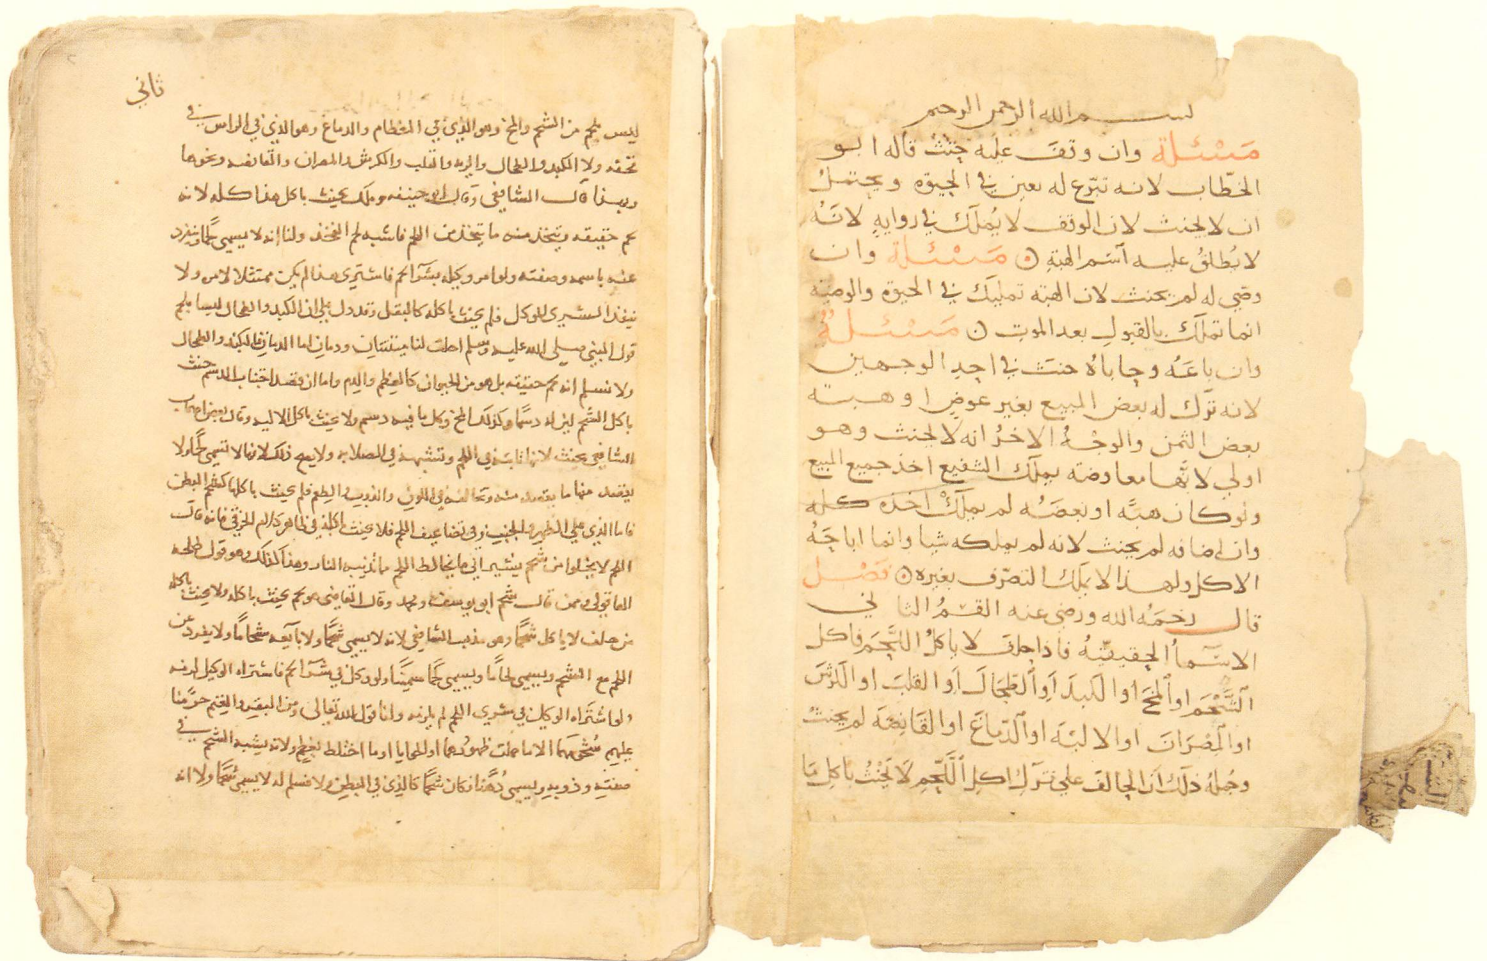 بسم الله الرحمن الرحيم
مسئلة وان وقف عليه حنث قاله ابو
الخطاب لانه تبرع له بعين في الحيوة ويحتمل
ان لا يحنث لان الوقف لا يملك في رواية لانه
لا يطلق عليه اسم الهبة مسئلة وان
وصى له لم يحنث لان الهبة تمليك في الحيوة والوصية
انما تملك بالقبول بعد الموت مسئلة
وان باعه وحاباه حنث في احد الوجهين
لانه ترك له بعض المبيع بغير عوض او هبة
بعض الثمن والوجه الاخر انه لا يحنث وهو
اولى لانها معاوضة يملك الشفيع اخذ جميع المبيع
ولو كان هبة او بعضه لم يملك اخذه كله
وان اضافه لم يحنث لانه لم يملكه شيا وانما اباحه
الاكل ولهذا لا يملك التصرف بغيره فصل
قال رحمه الله ورضى عنه القسم الثاني
الاسماء الحقيقية فاذا حلف لا ياكل اللحم فاكل
الشحم او المخ او الكبد او الطحال او القلب او الكرش
او المصران او الالية او الدماغ او القانصة لم يحنث
وجملة ذلك ان الحالف على ترك اكل اللحم لا يحنث باكل ما
ثاني
ليس بلحم من الشحم والمخ وهو الذي في العظام والدماغ وهو الذي في الراس في
قحفه ولا الكبد والطحال والرية والقلب والكرش والمصران والقانصة ونحوها
وبهذا قال الشافعي وقال ابو حنيفة ومالك يحنث باكل هذا كله لانه
لحم حقيقة ويتخذ منه ما يتخذ من اللحم فاشبه لحم الفخذ ولنا انه لا يسمى لحما وينفرد
عنه باسمه وصفته ولو امر وكيله بشرا لحم فاشترى هذا لم يكن ممتثلا لامره ولا
ينفذ الشرى للموكل فلم يحنث باكله كالبقل وقد دل على ان الكبد والطحال ليسا بلحم
قول النبي صلى الله عليه وسلم احلت لنا ميتتان ودمان اما الدمان فالكبد والطحال
ولا نسلم انه لحم حقيقة بل هو من الحيوان كالعظم والدم واما ان قصد اجتناب الدسم حنث
باكل الشحم لان له دسما وكذلك المخ وكل ما فيه دسم ولا يحنث باكل الالية وقال بعض اصحاب
الشافعي يحنث لانها نابتة في اللحم وتشبهه في الصلابة ولا يصح ذلك لانها لا تسمى لحما ولا
يقصد منها ما يقصد منه وتخالفه في اللون والذوب والطعم فلم يحنث باكلها كشحم البطن
فاما الذي على الظهر والجنب وفي تضاعيف اللحم فلا يحنث باكله في ظاهر كلام الخرقي فانه قال
اللحم لا يخلوا من شحم يشير الى ما يخالط اللحم ما تذيبه النار وهذا كذلك وهو قول طلحة
العاقولي وممن قال شحم ابو يوسف ومحمد وقال القاضي هو لحم يحنث باكله ولا يحنث باكله
من حلف لا ياكل شحما وهو مذهب الشافعي لانه لا يسمى شحما ولا بايعه شحاما ولا يفرد عن
اللحم مع الشحم ويسمى لحاما ويسمى لحما سمينا ولو وكل في شرا لحم فاشتراه الوكيل لزمه
ولو اشتراه الوكيل في شرى الشحم لم يلزمه ولنا قول الله تعالى ومن البقر والغنم حرمنا
عليهم شحومهما الا ما حملت ظهورهما او الحوايا او ما اختلط بعظم ولانه يشبه الشحم في
صفته وذوبه ويسمى دهنا فكان شحما كالذي في البطن ولا نسلم انه لا يسمى شحما ولا انه